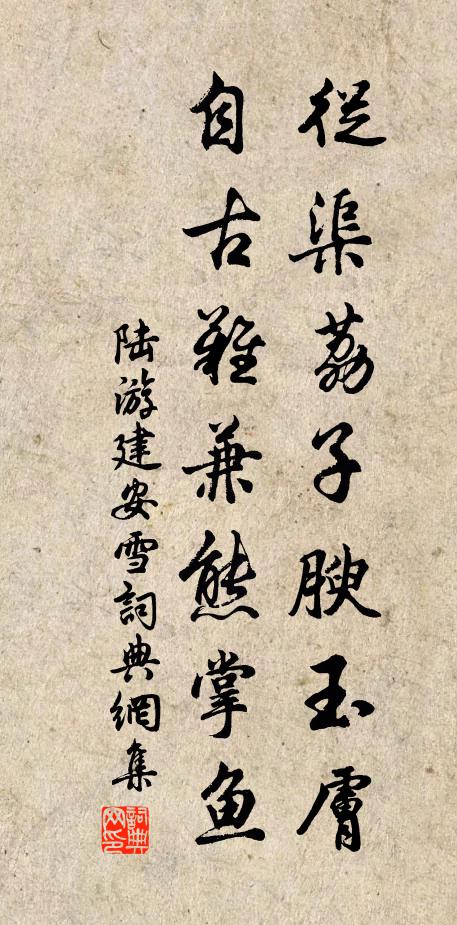 從渠荔子腴玉膚
自古難兼熊掌魚
陸游建安雪詞典網集
詞典网印